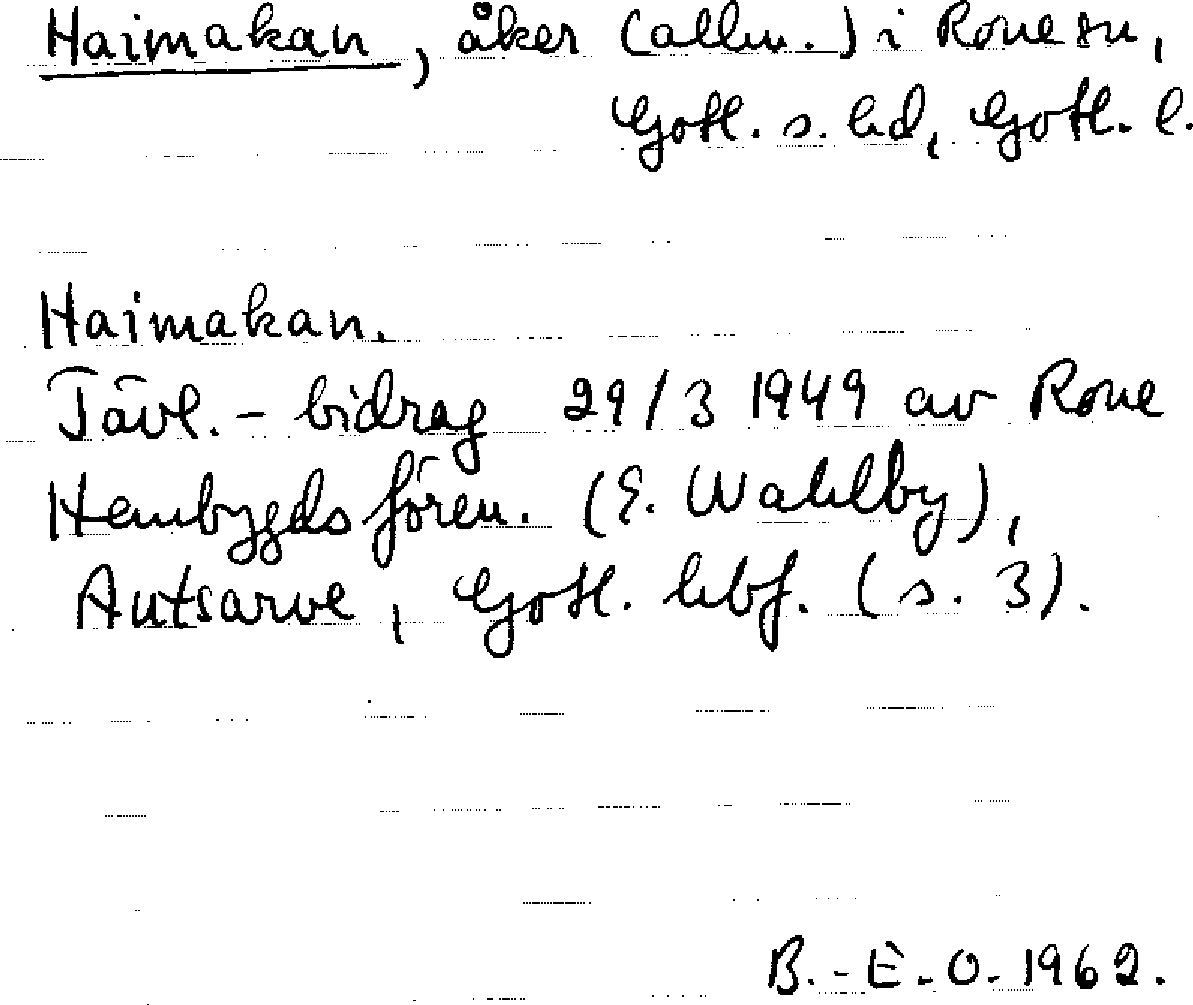 Haimakan, åker (allm.) i Rone sn,
Gotl. s. hd, Gotl. l.
Haimakan.
Tävl.-bidrag 29/3 1949 av Rone
Hembygdsfören. (E. Wahlby),
Autsarve, Gotl. hbf. (s. 3).
B.-E.O. 1962.